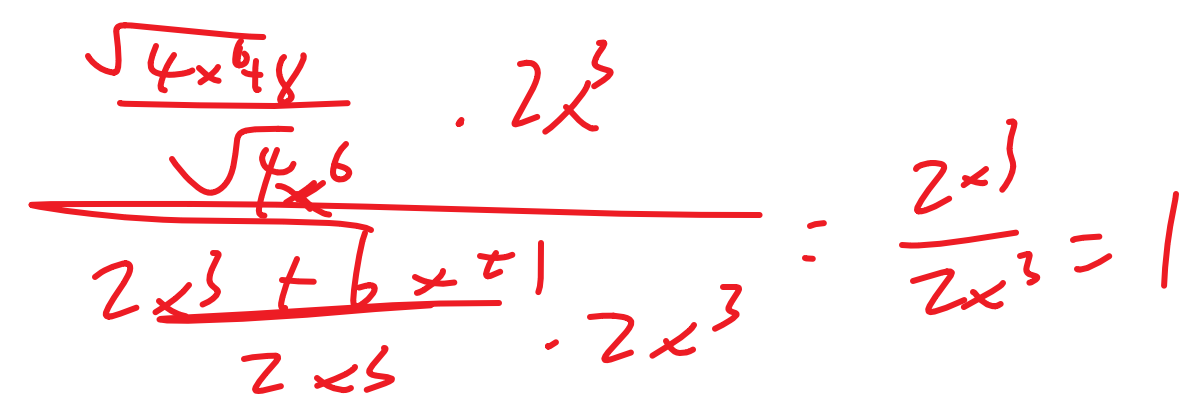 √4x⁶+8
√4x⁶
· 2x³
2x³ + 6x + 1
2x³
· 2x³
= 2x³
2x³
= 1